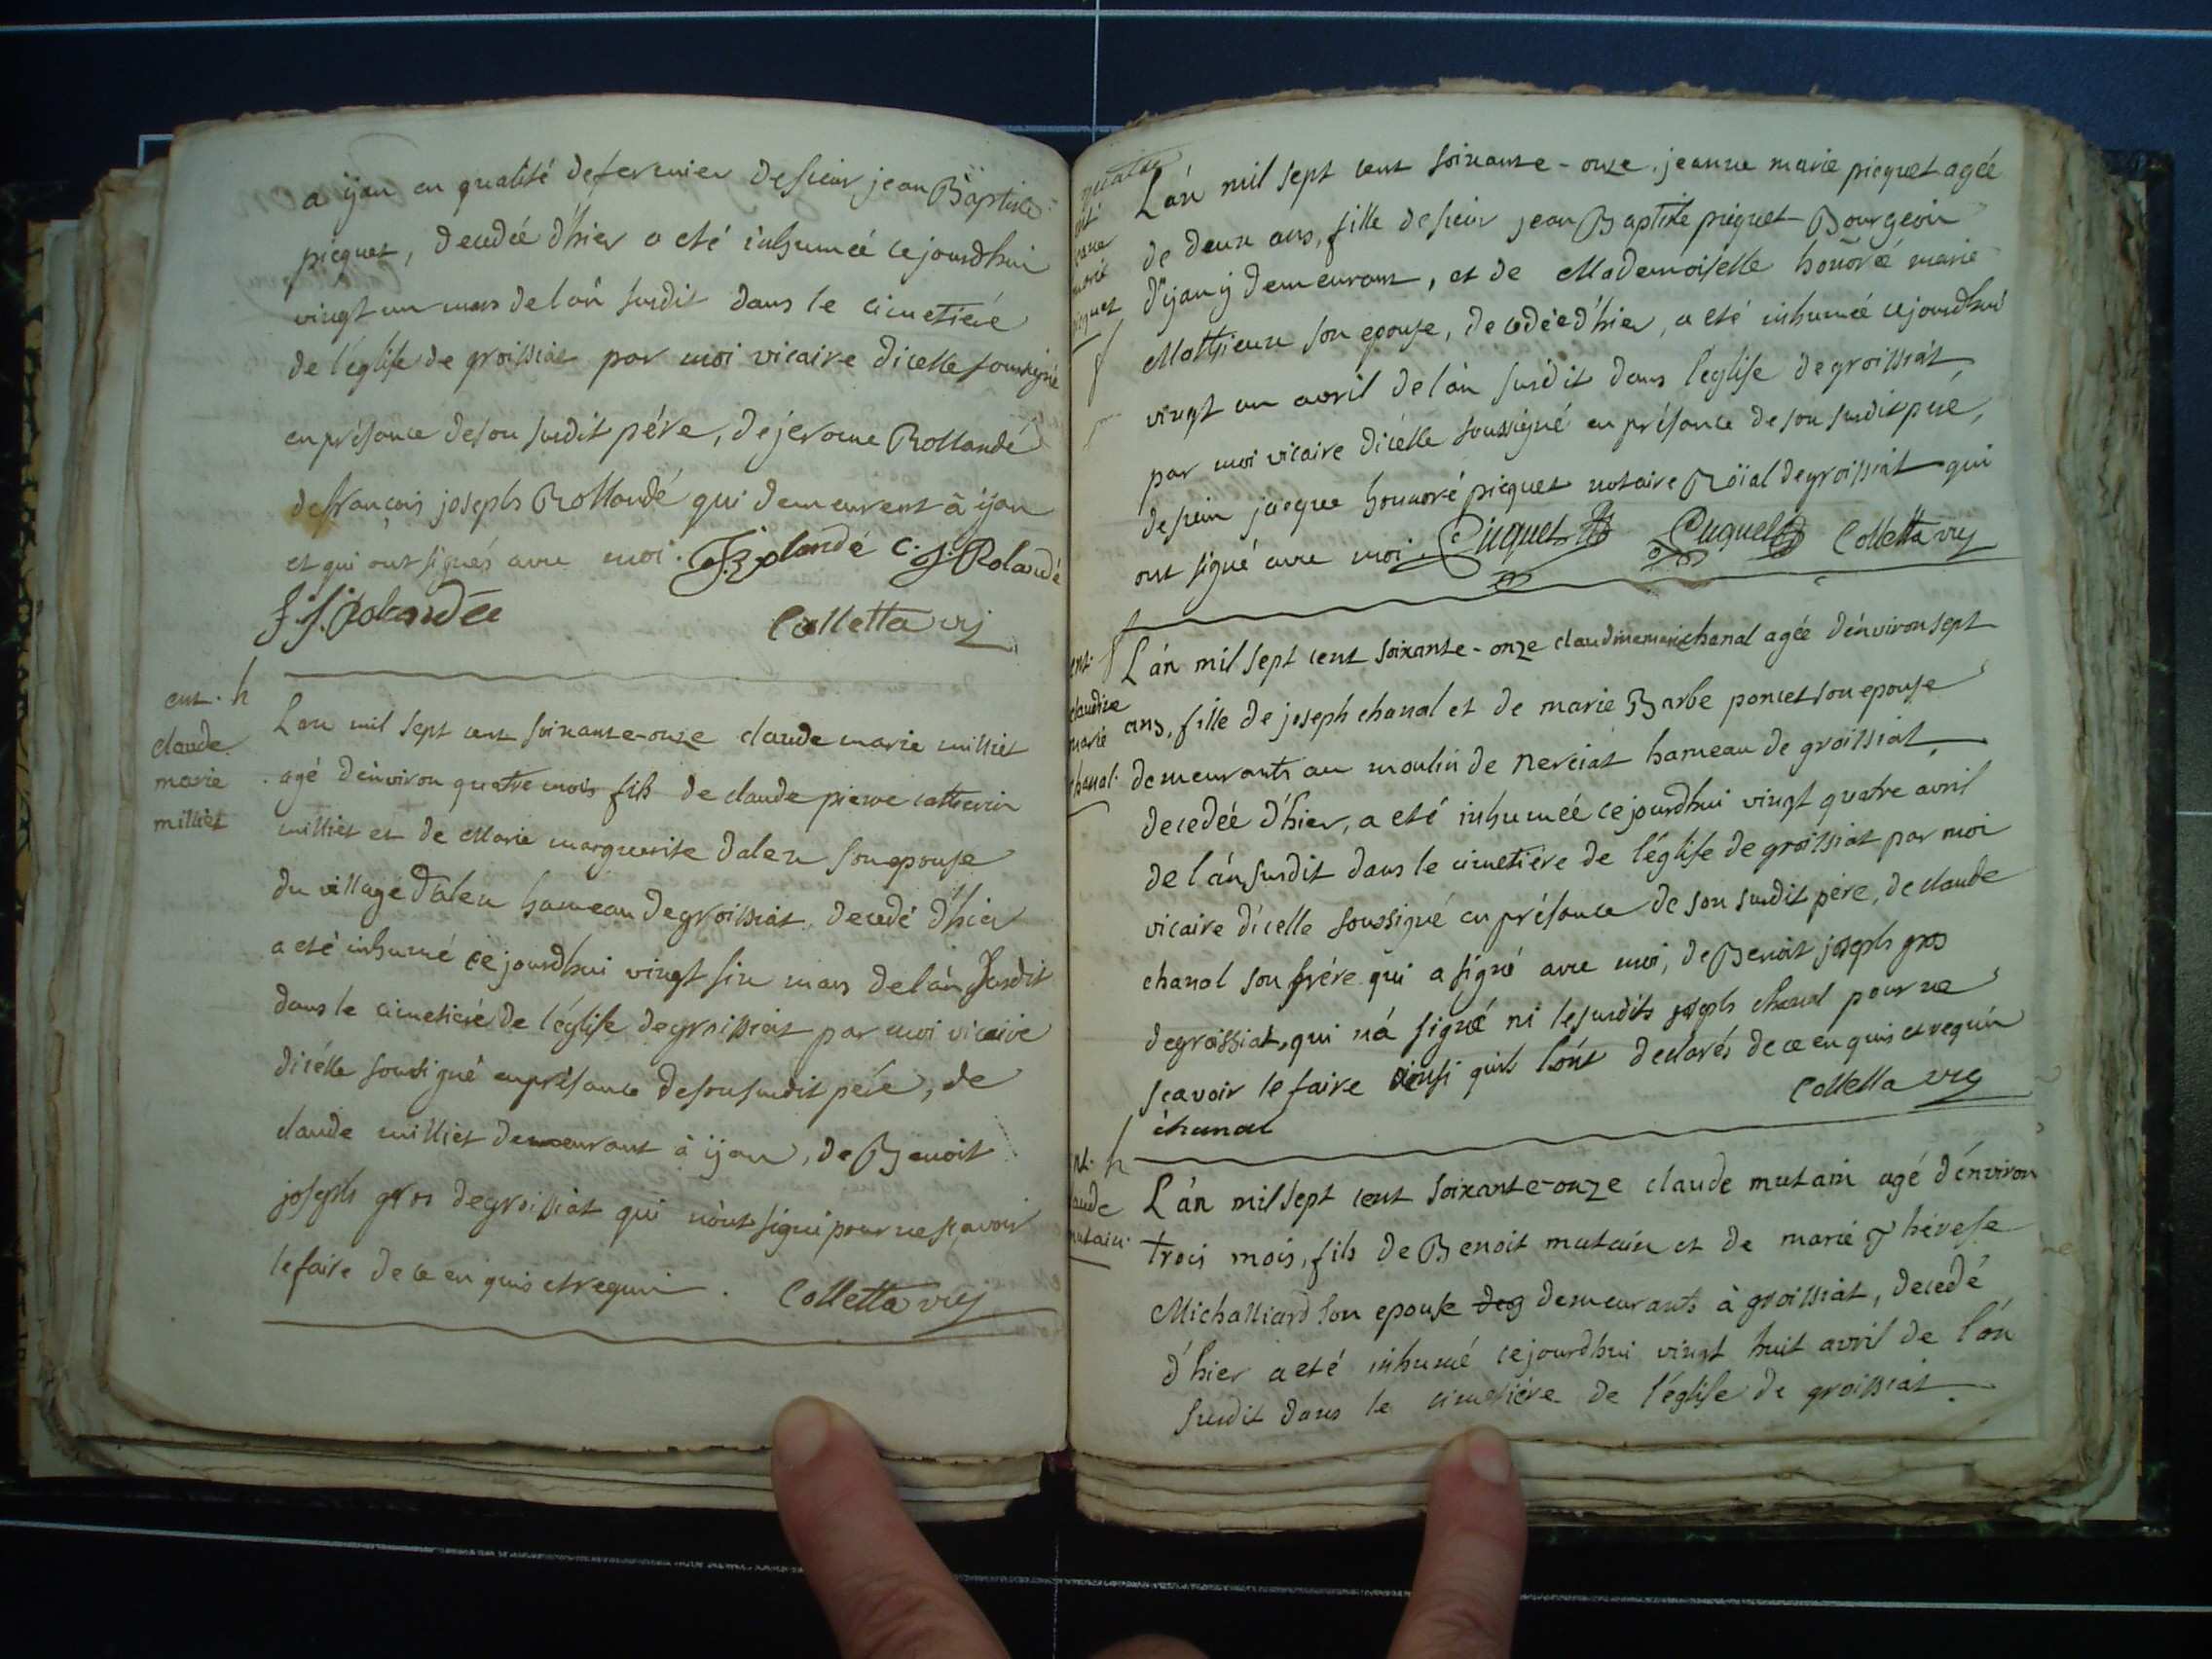 a ijan en qualité de fermier de sieur jean Baptiste
picquet, decedée d'hier a eté inhumée cejourdhui
vingt un mars de l'an susdit dans le cimetiére
de l'église de groissiat par moi vicaire d'icelle soussigné
en présance de son susdit pére, de jerome Rollandé
de françois joseph Rollandé qui demeurent à ijan
et qui ont signés avec moi. C. J. Rolandé
J. J. Rolandée Colletta vic
ent. h
claude
marie
milliet
L'an mil sept cent soixante-onze claude marie milliet
agé d'environ quatre mois fils de claude pierre
milliet et de Marie marguerite dalex son epouse
du village d'alex hameau de groissiat, decedé d'hier
a eté inhumé cejourdhui vingt six mars de l'an susdit
dans le cimetiére de l'église de groissiat par moi vicaire
d'icélle soussigné en présance de son susdit pére, de
claude milliet demeurant à ijan, de Benoit
joseph gros de groissiat qui n'ont signé pour ne sçavoir
le faire de ce enquis et requis. Colletta vic
jeanne
marie
picquet
L'án mil sept cent soixante-onze, jeanne marie picquet agée
de deux ans, fille de sieur jean Baptiste picquet Bourgeois
d'ijan ÿ demeurant, et de Mademoiselle honorée marie
Mathieux son epouse, decedée d'hier, a eté inhumée cejourdhui
vingt un avril de l'án susdit dans l'église de groissiat
par moi vicaire d'icélle soussigné en présance de son susdit peré,
de sieur jacque honnoré picquet notaire Roïal de groissiat qui
ont signé avec moi. Picquet Picquet Colletta vic
ent. f
claudine
marie
chanal.
L'án mil sept cent soixante-onze claudine marie chanal agée d'environ sept
ans, fille de joseph chanal et de marie Barbe poncet son epouse
demeurants au moulin de nerciat hameau de groissiat,
decedée d'hier, a eté inhumée cejourdhui vingt quatre avril
de l'án susdit dans le cimetiére de l'église de groissiat par moi
vicaire d'icelle soussigné en présance de son susdit pére, de claude
chanal son frére qui a signé avec moi, de Benoit joseph gros
de groissiat, qui n'á signé ni le susdits joseph chanal pour ne
sçavoir le faire ainsi quils l'ont declarés de ce enquis et requis
chanal Colletta vic
ent. h
claude
mutain.
L'án mil sept cent soixante-onze claude mutain agé d'environ
trois mois, fils de Benoit mutain et de marie Thérese
Michalliard son epouse deg demeurants à groissiat, decedé
d'hier a eté inhumé cejourdhui vingt huit avril de l'án
susdit dans le cimetiére de l'église de groissiat.